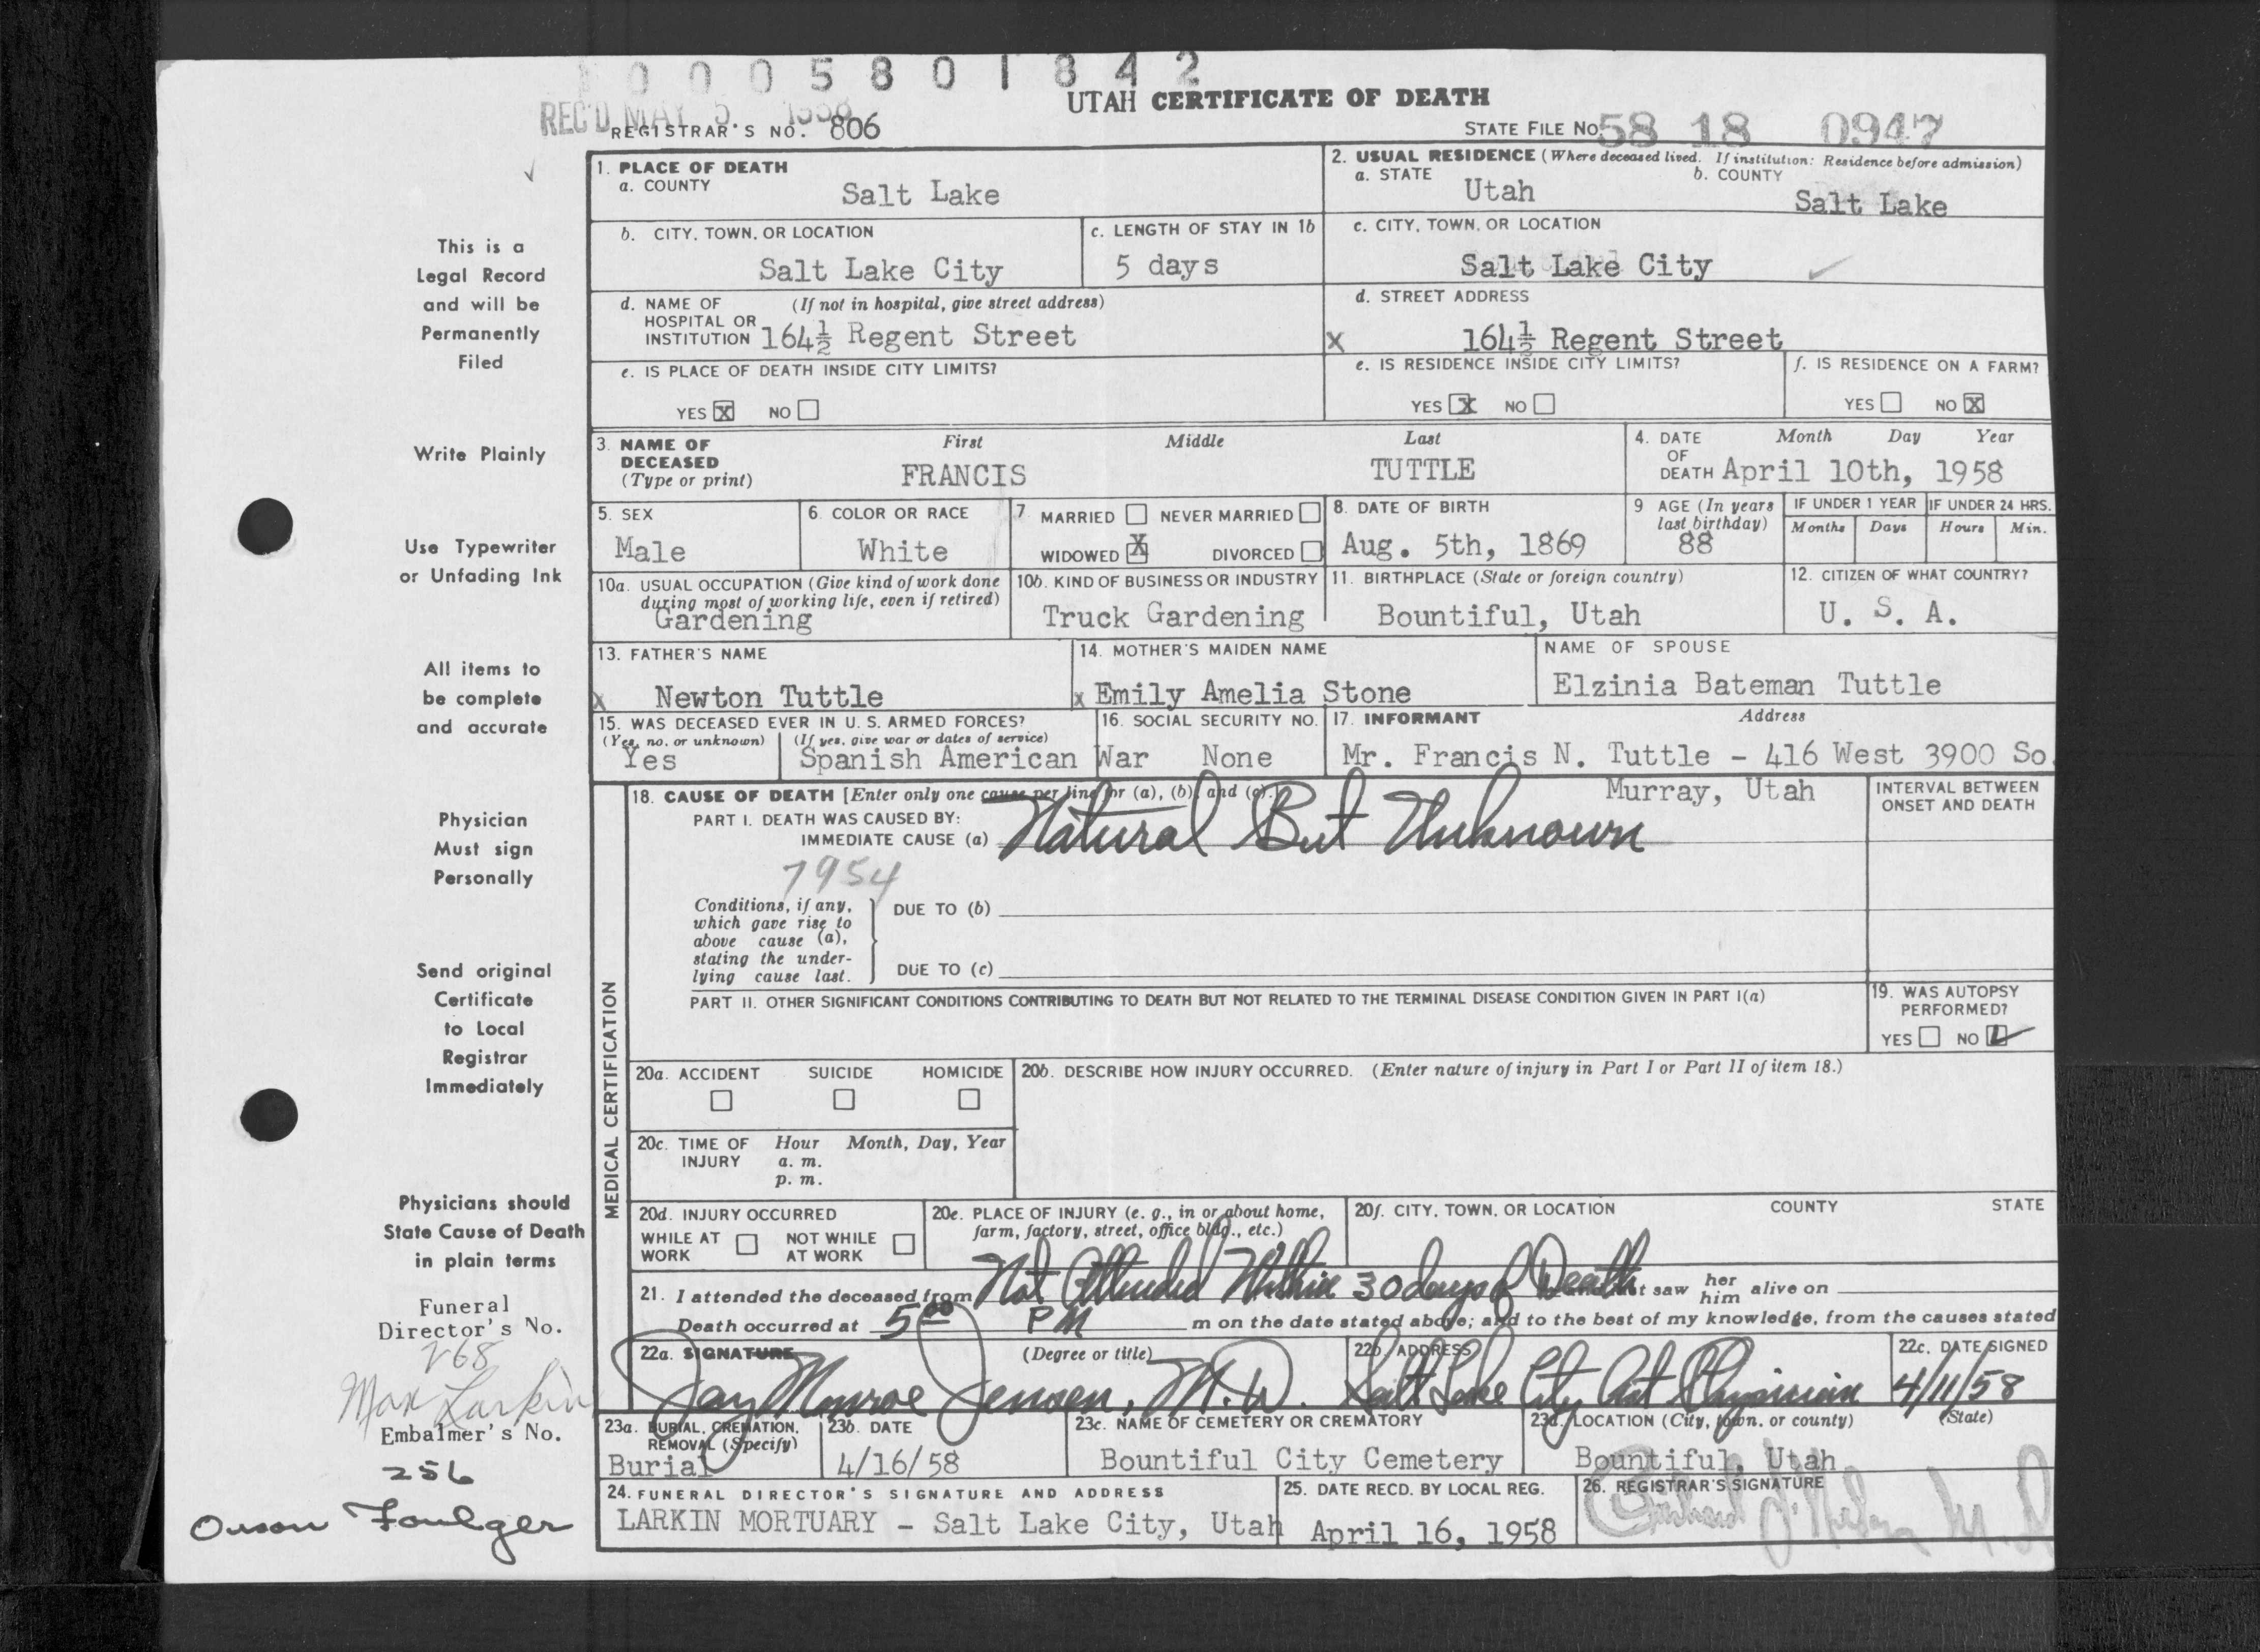 0005801842
REC'D MAY 5 1958
UTAH CERTIFICATE OF DEATH
REGISTRAR'S NO. 806
STATE FILE NO. 58 18 0947
This is a
Legal Record
and will be
Permanently
Filed
Write Plainly
Use Typewriter
or Unfading Ink
All items to
be complete
and accurate
Physician
Must sign
Personally
Send original
Certificate
to Local
Registrar
Immediately
Physicians should
State Cause of Death
in plain terms
Funeral
Director's No.
268
Max Larkin
Embalmer's No.
256
Orson Foulger
1. PLACE OF DEATH
a. COUNTY Salt Lake
2. USUAL RESIDENCE (Where deceased lived. If institution: Residence before admission)
a. STATE Utah b. COUNTY Salt Lake
b. CITY, TOWN, OR LOCATION Salt Lake City
c. LENGTH OF STAY IN 1b 5 days
c. CITY, TOWN, OR LOCATION Salt Lake City
d. NAME OF (If not in hospital, give street address)
HOSPITAL OR
INSTITUTION 164½ Regent Street
d. STREET ADDRESS
X 164½ Regent Street
e. IS PLACE OF DEATH INSIDE CITY LIMITS?
YES X NO
e. IS RESIDENCE INSIDE CITY LIMITS?
YES X NO
f. IS RESIDENCE ON A FARM?
YES NO X
3. NAME OF DECEASED (Type or print)
First Middle Last
FRANCIS TUTTLE
4. DATE OF DEATH Month Day Year
April 10th, 1958
5. SEX
Male
6. COLOR OR RACE
White
7 MARRIED NEVER MARRIED
WIDOWED X DIVORCED
8. DATE OF BIRTH
Aug. 5th, 1869
9 AGE (In years last birthday)
88
IF UNDER 1 YEAR IF UNDER 24 HRS.
Months Days Hours Min.
10a. USUAL OCCUPATION (Give kind of work done
during most of working life, even if retired)
Gardening
10b. KIND OF BUSINESS OR INDUSTRY
Truck Gardening
11. BIRTHPLACE (State or foreign country)
Bountiful, Utah
12. CITIZEN OF WHAT COUNTRY?
U. S. A.
13. FATHER'S NAME
x Newton Tuttle
14. MOTHER'S MAIDEN NAME
x Emily Amelia Stone
NAME OF SPOUSE
Elzinia Bateman Tuttle
15. WAS DECEASED EVER IN U. S. ARMED FORCES?
(Yes, no. or unknown) (If yes, give war or dates of service)
Yes Spanish American War
16. SOCIAL SECURITY NO.
None
17. INFORMANT Address
Mr. Francis N. Tuttle - 416 West 3900 So.
Murray, Utah
MEDICAL CERTIFICATION
18. CAUSE OF DEATH [Enter only one cause per line for (a), (b), and (c).]
INTERVAL BETWEEN
ONSET AND DEATH
PART I. DEATH WAS CAUSED BY:
IMMEDIATE CAUSE (a) Natural But Unknown
7954
Conditions, if any,
which gave rise to
above cause (a),
stating the under-
lying cause last.
DUE TO (b)
DUE TO (c)
PART II. OTHER SIGNIFICANT CONDITIONS CONTRIBUTING TO DEATH BUT NOT RELATED TO THE TERMINAL DISEASE CONDITION GIVEN IN PART I(a)
19. WAS AUTOPSY
PERFORMED?
YES NO
20a. ACCIDENT SUICIDE HOMICIDE
20b. DESCRIBE HOW INJURY OCCURRED. (Enter nature of injury in Part I or Part II of item 18.)
20c. TIME OF INJURY Hour Month, Day, Year
a. m.
p. m.
20d. INJURY OCCURRED
WHILE AT WORK NOT WHILE AT WORK
20e. PLACE OF INJURY (e. g., in or about home,
farm, factory, street, office bldg., etc.)
20f. CITY, TOWN, OR LOCATION COUNTY STATE
21. I attended the deceased from Not Attended Within 30 days of Death last saw her him alive on
Death occurred at 5 00 PM m on the date stated above; and to the best of my knowledge, from the causes stated
22a. SIGNATURE (Degree or title)
Jay Monroe Jensen, M.D.
22b. ADDRESS
Salt Lake City Asst Physician
22c. DATE SIGNED
4/11/58
23a. BURIAL, CREMATION,
REMOVAL (Specify)
Burial
23b. DATE
4/16/58
23c. NAME OF CEMETERY OR CREMATORY
Bountiful City Cemetery
23d. LOCATION (City, town, or county) (State)
Bountiful, Utah
24. FUNERAL DIRECTOR'S SIGNATURE AND ADDRESS
LARKIN MORTUARY - Salt Lake City, Utah
25. DATE RECD. BY LOCAL REG.
April 16, 1958
26. REGISTRAR'S SIGNATURE